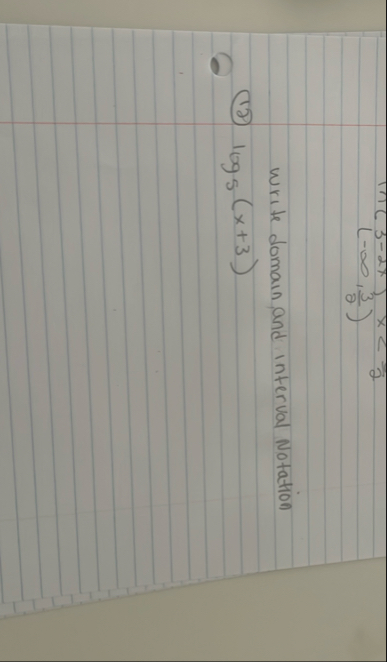 ln(3-2x) x < 3/2
(-∞, 3/2)
write domain and interval Notation
(13) log5 (x+3)